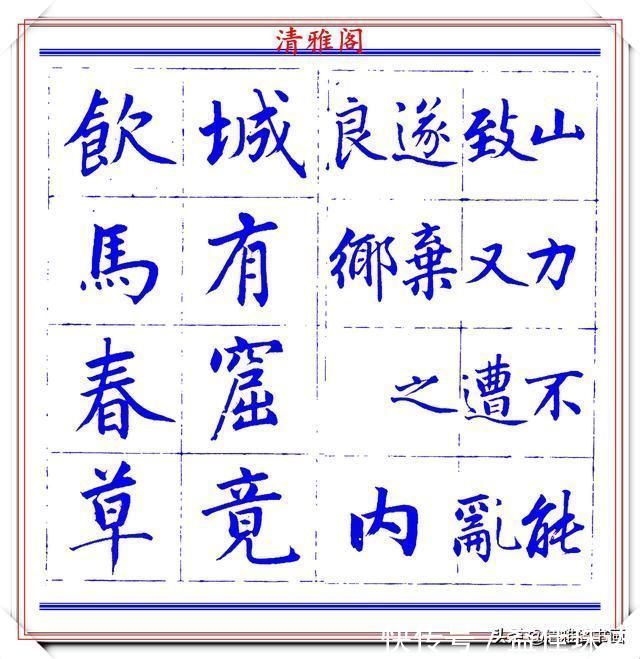 清雅阁
山力不能
致又遭亂
遂棄之
良鄉
内
城有窟竟
飲馬春草
快传号